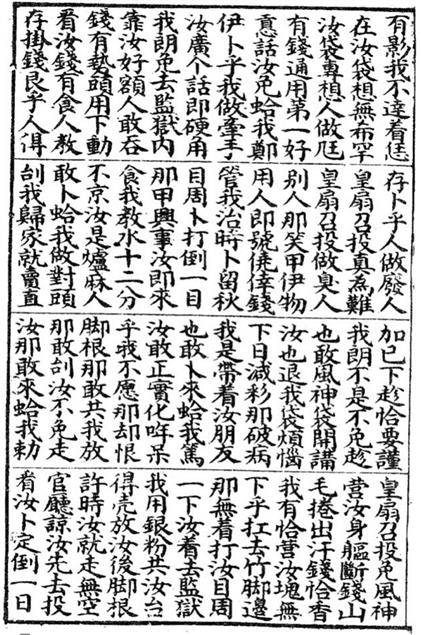 有影我不達着恁
存卜乎人做廢人
加已下趁恰要謹
皇扇召投免風神
在汝袋想無布罕
皇扇召投真為難
我朗不是不免趁
营汝身軀斷錢山
汝袋專想人做尫
皇扇召投做臭人
也敢風神袋開講
毛捲出汗錢恰香
有錢通用第一好
別人那笑甲伊物
汝也退我袋煩惱
我有恰营汝塊無
意話汝免蛤我鄭
用人即號僥倖錢
下日減彩那破病
下乎扛去竹脚邊
伊卜乎我做牽手
管我治時卜留秋
我是帶着汝朋友
那無着打汝目周
汝廣个話即硬角
目周卜打倒一目
也敢卜來蛤我篤
一下汝着去監獄
我朗免去監獄內
那甲興事汝即來
汝敢正實化吽呆
我用銀粉共汝台
靠汝好額人敢吞
食我教水十二分
乎我不應那却恨
得壳放汝後脚根
錢有藝頭用下動
不京汝是爐麻人
脚根那敢共我放
許時汝就走無空
看汝錢有食人教
敢卜蛤我做對頭
那敢刣汝不免走
官廳諒汝先去投
存掛錢良乎人得
刣我歸家就賣直
汝那敢來蛤我勅
看汝卜定倒一日